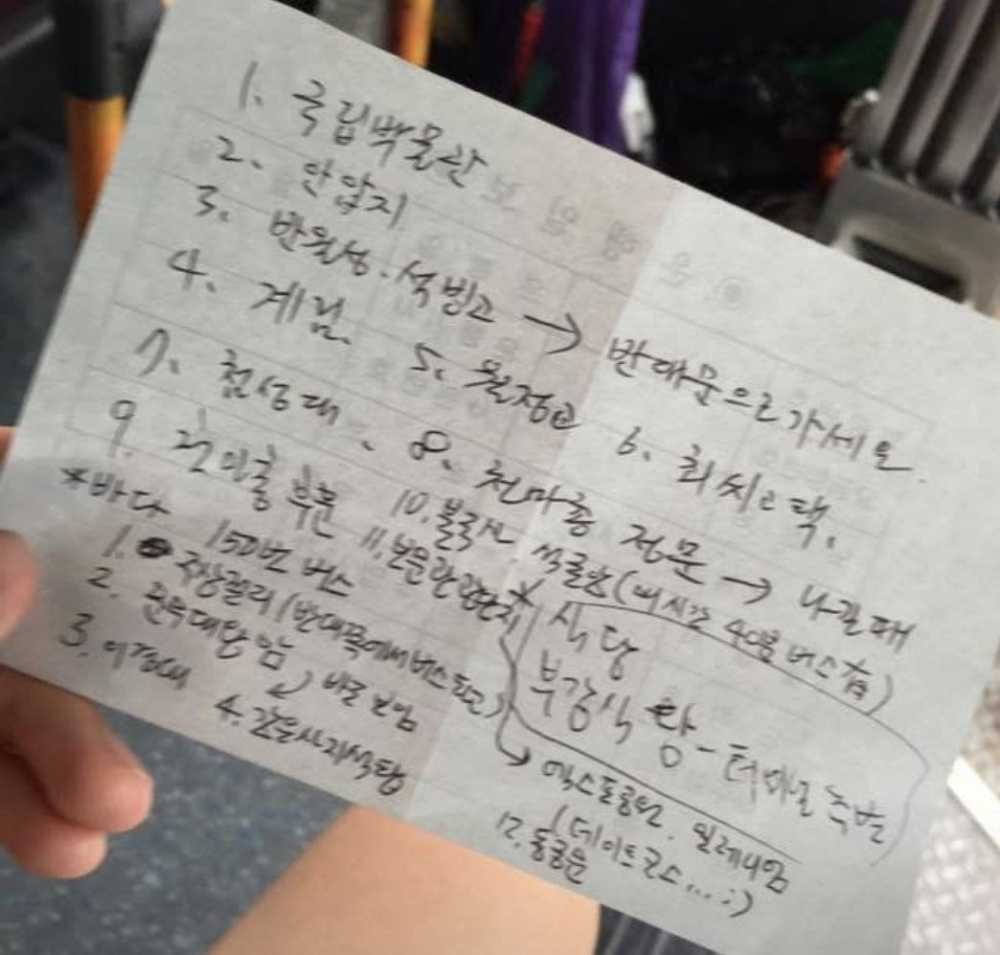 1. 국립박물관
2. 안압지
3. 반월성. 석빙고 → 반대문으로 가세요.
4. 계림. 5. 월정교 6. 최씨고택.
7. 첨성대. 8. 천마총 정문 → 나갈때
9. 후문 10. 불국사 석굴암 (매시간 40분 버스有)
11. 보문관광단지
→ 엑스포공원. 밀레니엄
(데이트코스...:)
12. 동궁원
*바다 150번 버스
1. 주상절리 (반대쪽에서 버스타고)
2. 문무대왕암, 바로 보임
3. 이견대 4. 감은사지석탑
* 식당
부강식당 - 터미널